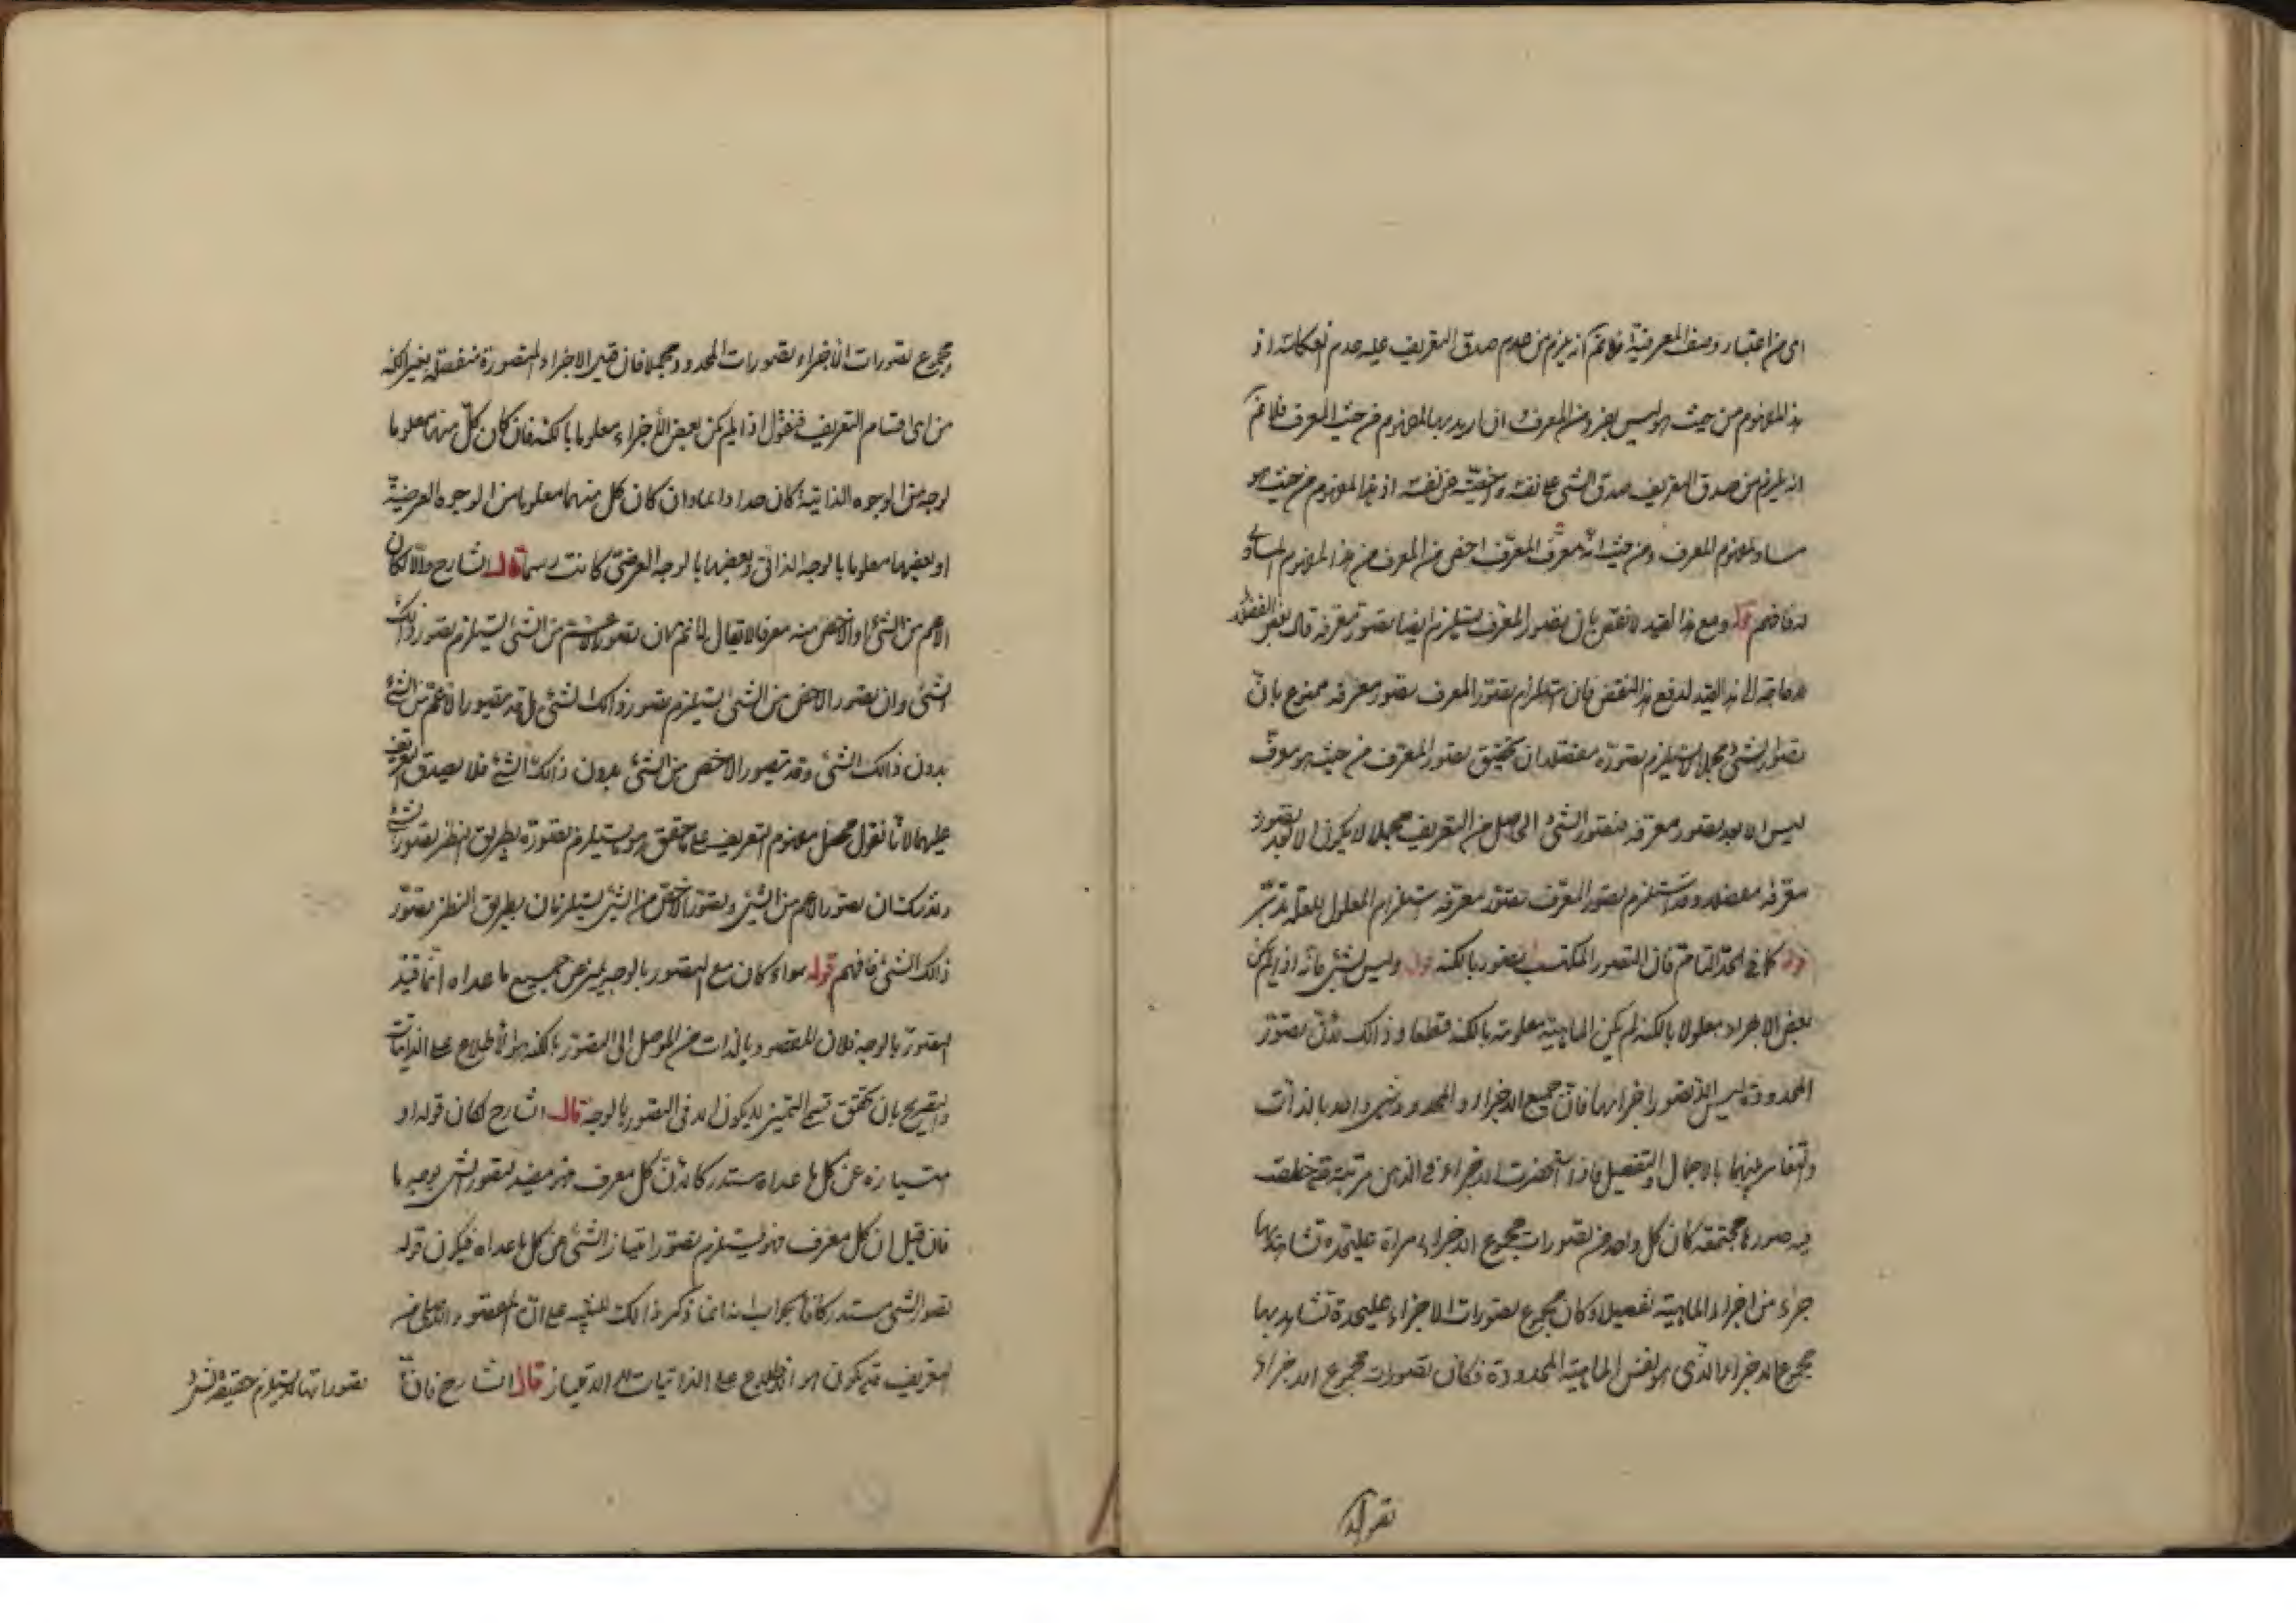 اى من اعتبار وصف المعرفية فلا نم انه يلزم من عدم صدق التعريف عليه عدم انعكاسه اذ
هذا المفهوم من حيث هو ليس بفرد من المعرف ان اريد بها المفهوم من حيث المعرف فلا نم
انه يلزم من صدق التعريف صدق الشئ على نفسه واخصيته من نفسه اذ هذا المفهوم من حيث هو
مساو لمفهوم المعرف ومن حيث انه معرف المعرف اخص من المعرف من هذا المفهوم المساوى
له فافهم قوله ومع هذا القيد لا نقض بان تصور المعرف يستلزم ايضا تصور معرفه قال بعض الفضلاء
لا حاجة الى هذا القيد لدفع هذا النقض فان استلزام تصور المعرف تصور معرفه ممنوع بان
تصور الشئ مجملا لا يستلزم تصوره مفصلا وان تحقيق تصور المعرف من حيث هو معرف
ليس الا بعد تصور معرفه فتصور الشئ الحاصل من التعريف مجملا لا يكون الا بعد تصور
معرفه مفصلا وقد استلزم تصور المعرف تصور معرفه استلزام المعلول للعلة تدبر
قوله كما فى الحد التام فان التصور المكتسب تصور بالكنه قوله وليس بشئ فانه اذا لم يكن
بعض الاجزاء معلوما بالكنه لم يكن الماهية معلومة بالكنه قطعا وذالك لان تصور
المحدود ليس الا تصور اجزائها فان جميع الاجزاء والمحدود شئ واحد بالذات
والتغاير بينهما بالاجمال والتفصيل فاذا استحضرت الاجزاء فى الذهن مرتبة
فيه صورها مجتمعة كان كل واحد من تصورات مجموع الاجزاء مراة عليحدة تشاهد بها
جزء من اجزاء الماهية تفصيلا وكان مجموع تصورات الاجزاء عليحدة تشاهد بها
مجموع الاجزاء الذى هو نفس الماهية المحدودة فكان تصورات مجموع الاجزاء
ومجموع تصورات الاجزاء تصورات المحدود مجملا فان قيل الاجزاء المتصورة منفصلة بغير الكنه
من اى اقسام التعريف فنقول اذا لم يكن بعض الاجزاء معلوما بالكنه فان كان كل منهما معلوما
لوجه من الوجوه الذاتية كان حدا وان كان كل منهما معلوما من الوجوه العرضية
او بعضها معلوما بالوجه الذاتى وبعضها بالوجه العرضى كانت رسما قال الشارح والا لكان
الاعم من الشئ او الاخص منه معرفا لا يقال لا نم ان تصور الاعم من الشئ يستلزم تصور ذالك
الشئ وان تصور الاخص من الشئ يستلزم تصور ذالك الشئ بل قد يتصور الاعم من الشئ
بدون ذالك الشئ وقد يتصور الاخص من الشئ بدون ذالك الشئ فلا يصدق التعريف
عليهما لانا نقول محصل مفهوم التعريف على ما تحقق هو ما يستلزم تصوره بطريق النظر تصور الشئ
ولا شك ان تصور الاعم من الشئ وتصور الاخص من الشئ يستلزمان بطريق النظر تصور
ذالك الشئ فافهم قوله سواء كان مع التصور بالوجه يميز عن جميع ما عداه انما قيد
التصور بالوجه فلان المقصود بالذات من الموصل الى التصور بالكنه هو الاطلاع على الذاتيات
والتصريح بان تحقق قسم التميز لا يكون الا فى التصور بالوجه قال الشارح لكان قوله او
امتيازه عن كل ما عداه مستدركا لان كل معرف فهو مفيد لتصور الشئ بوجه ما
فان قيل ان كل معرف فهو يستلزم تصور امتياز الشئ عن كل ما عداه فيكون قوله
تصور الشئ مستدركا فالجواب انما ذكر ذالك للتنبيه على ان المقصود الاصلى من
التعريف قد يكون هو الاطلاع على الذاتيات لا الامتياز قال الشارح فان
تصوراتها لا يستلزم حقيقة الشئ